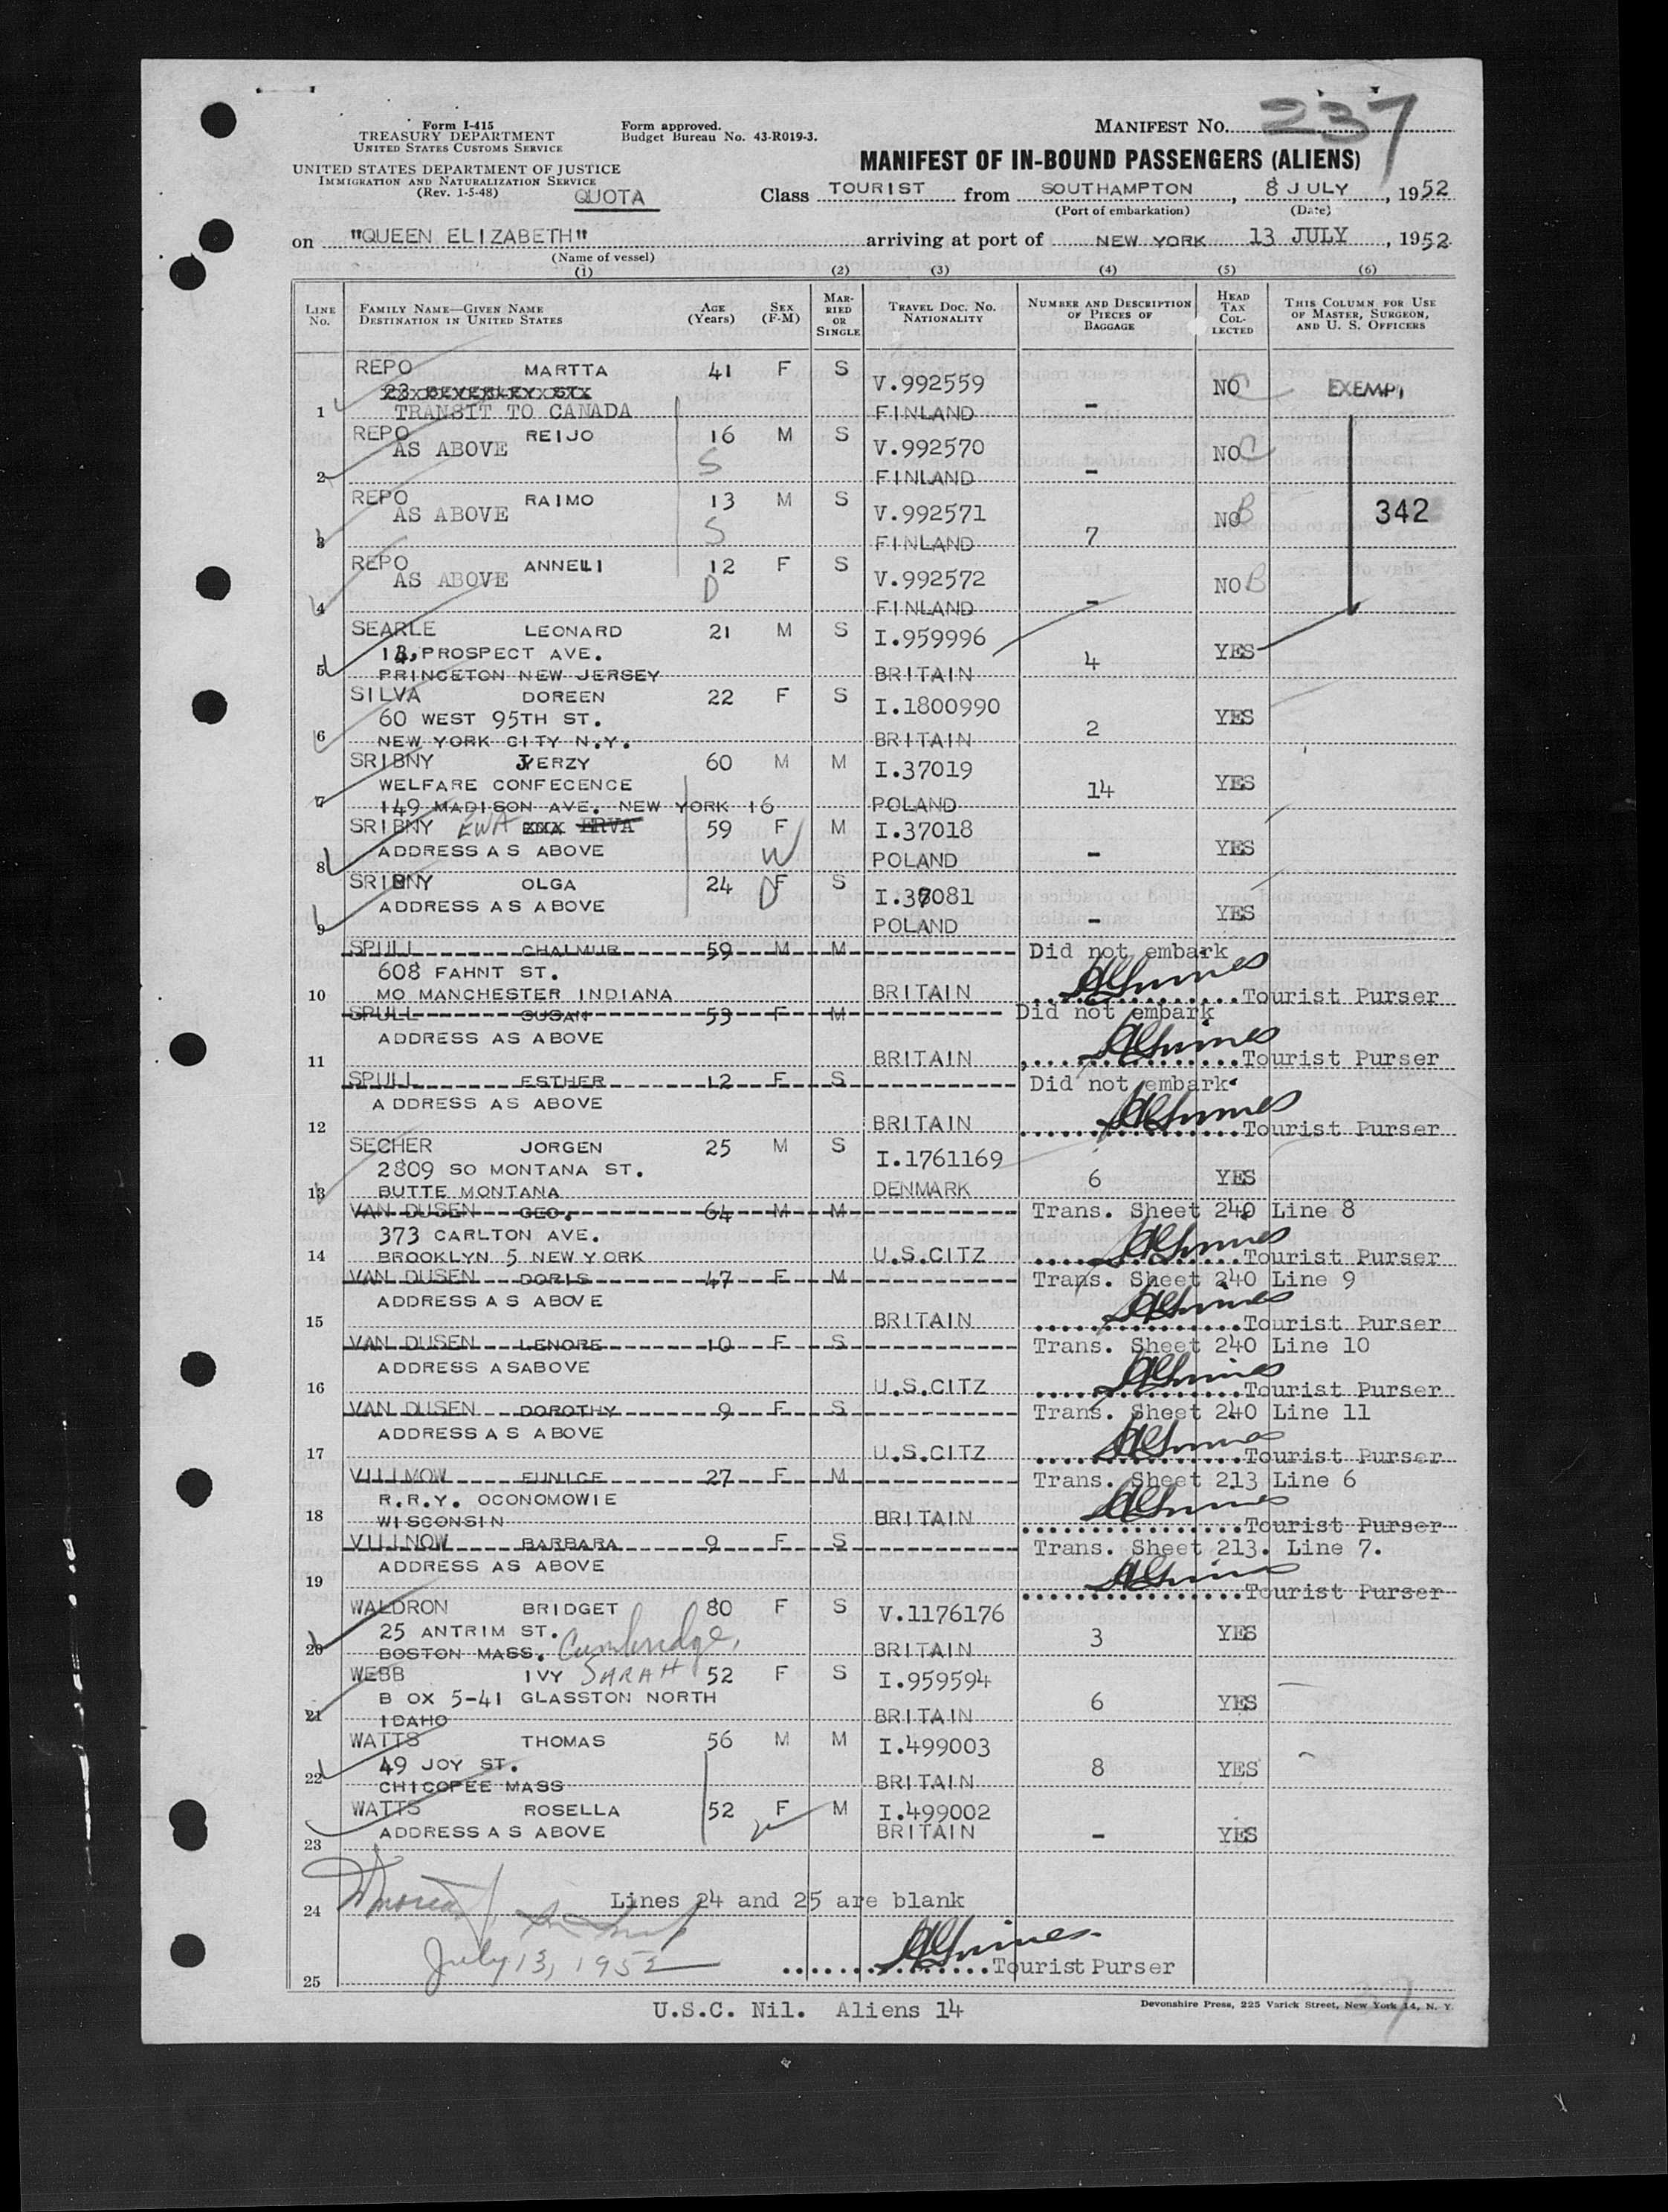 Form I-415
TREASURY DEPARTMENT
UNITED STATES CUSTOMS SERVICE
UNITED STATES DEPARTMENT OF JUSTICE
IMMIGRATION AND NATURALIZATION SERVICE
(Rev. 1-5-48)
QUOTA
Form approved.
Budget Bureau No. 43-R019-3.
MANIFEST NO. 237
MANIFEST OF IN-BOUND PASSENGERS (ALIENS)
Class TOURIST from SOUTHAMPTON, 8 JULY, 1952
(Port of embarkation) (Date)
on "QUEEN ELIZABETH" arriving at port of NEW YORK 13 JULY, 1952
(Name of vessel)
(1) (2) (3) (4) (5) (6)
LINE No. FAMILY NAME—GIVEN NAME DESTINATION IN UNITED STATES AGE (Years) SEX (F-M) MARRIED OR SINGLE TRAVEL DOC. NO. NATIONALITY NUMBER AND DESCRIPTION OF PIECES OF BAGGAGE HEAD TAX COLLECTED THIS COLUMN FOR USE OF MASTER, SURGEON, AND U. S. OFFICERS
REPO MARTTA 41 F S V.992559 NO C EXEMPT
23 BEVERLEY ST
1 TRANSIT TO CANADA FINLAND -
REPO REIJO 16 M S V.992570 NO C
AS ABOVE S
2 FINLAND -
REPO RAIMO 13 M S V.992571 NO B 342
AS ABOVE S
3 FINLAND 7
REPO ANNELI 12 F S V.992572 NO B
AS ABOVE D
4 FINLAND -
SEARLE LEONARD 21 M S I.959996 YES
PROSPECT AVE. 4
5 PRINCETON NEW JERSEY BRITAIN
SILVA DOREEN 22 F S I.1800990 YES
60 WEST 95TH ST. 2
6 NEW YORK CITY N.Y. BRITAIN
SRIBNY JERZY 60 M M I.37019 YES
WELFARE CONFECENCE 14
7 149 MADISON AVE. NEW YORK 16 POLAND
SRIBNY EWA ERVA 59 F M I.37018 YES
8 ADDRESS A S ABOVE W POLAND -
SRIBNY OLGA 24 F S I.37081 YES
ADDRESS A S ABOVE D
9 POLAND -
SPULL CHALMUR 59 M M Did not embark
608 FAHNT ST.
10 MO MANCHESTER INDIANA BRITAIN Tourist Purser
SPULL SUSAN 53 F M Did not embark
ADDRESS AS ABOVE
11 BRITAIN Tourist Purser
SPULL ESTHER 12 F S Did not embark
A DDRESS AS ABOVE
12 BRITAIN Tourist Purser
SECHER JORGEN 25 M S I.1761169
2809 SO MONTANA ST. 6 YES
13 BUTTE MONTANA DENMARK
VAN DUSEN GEO. 64 M M Trans. Sheet 240 Line 8
373 CARLTON AVE.
14 BROOKLYN 5 NEW YORK U.S.CITZ Tourist Purser
VAN DUSEN DORIS 47 F M Trans. Sheet 240 Line 9
ADDRESS A S ABOVE
15 BRITAIN Tourist Purser
VAN DUSEN LENORE 10 F S Trans. Sheet 240 Line 10
ADDRESS ASABOVE
16 U.S.CITZ Tourist Purser
VAN DUSEN DOROTHY 9 F S Trans. Sheet 240 Line 11
ADDRESS A S ABOVE
17 U.S.CITZ Tourist Purser
VILLMOW EUNICE 27 F M Trans. Sheet 213 Line 6
R.R.Y. OCONOMOWIE
18 WISCONSIN BRITAIN Tourist Purser
VILLNOW BARBARA 9 F S Trans. Sheet 213. Line 7.
ADDRESS AS ABOVE
19 Tourist Purser
WALDRON BRIDGET 80 F S V.1176176
25 ANTRIM ST. 3 YES
20 BOSTON MASS. Cambridge, BRITAIN
WEBB IVY SARAH 52 F S I.959594
B OX 5-41 GLASSTON NORTH 6 YES
21 IDAHO BRITAIN
WATTS THOMAS 56 M M I.499003
49 JOY ST. 8 YES
22 CHICOPEE MASS BRITAIN
WATTS ROSELLA 52 F M I.499002
ADDRESS A S ABOVE W BRITAIN
23 - YES
24 Lines 24 and 25 are blank
July 13, 1952
25 Tourist Purser
U.S.C. Nil. Aliens 14
Devonshire Press, 225 Varick Street, New York 14, N. Y.